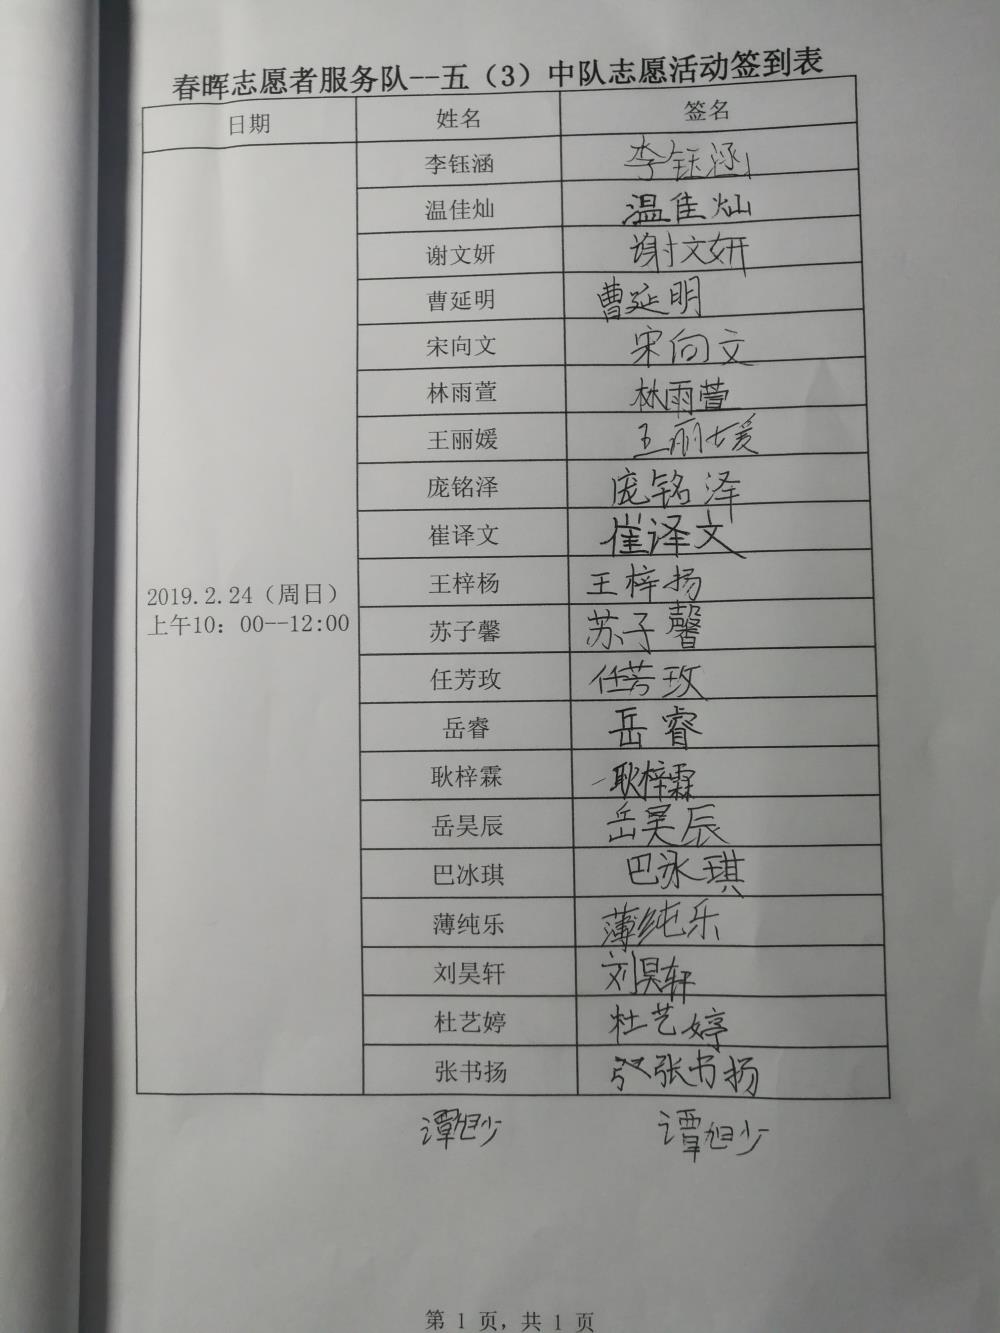 春晖志愿者服务队--五（3）中队志愿活动签到表
日期 姓名 签名
李钰涵 李钰涵
温佳灿 温佳灿
谢文妍 谢文妍
曹延明 曹延明
宋向文 宋向文
林雨萱 林雨萱
王丽媛 王丽媛
庞铭泽 庞铭泽
崔译文 崔译文
2019.2.24（周日）
上午10：00--12:00
王梓杨 王梓扬
苏子馨 苏子馨
任芳玫 任芳玫
岳睿 岳睿
耿梓霖 耿梓霖
岳昊辰 岳昊辰
巴冰琪 巴冰琪
薄纯乐 薄纯乐
刘昊轩 刘昊轩
杜艺婷 杜艺婷
张书扬 张书扬
谭旭少 谭旭少
第 1 页，共 1 页